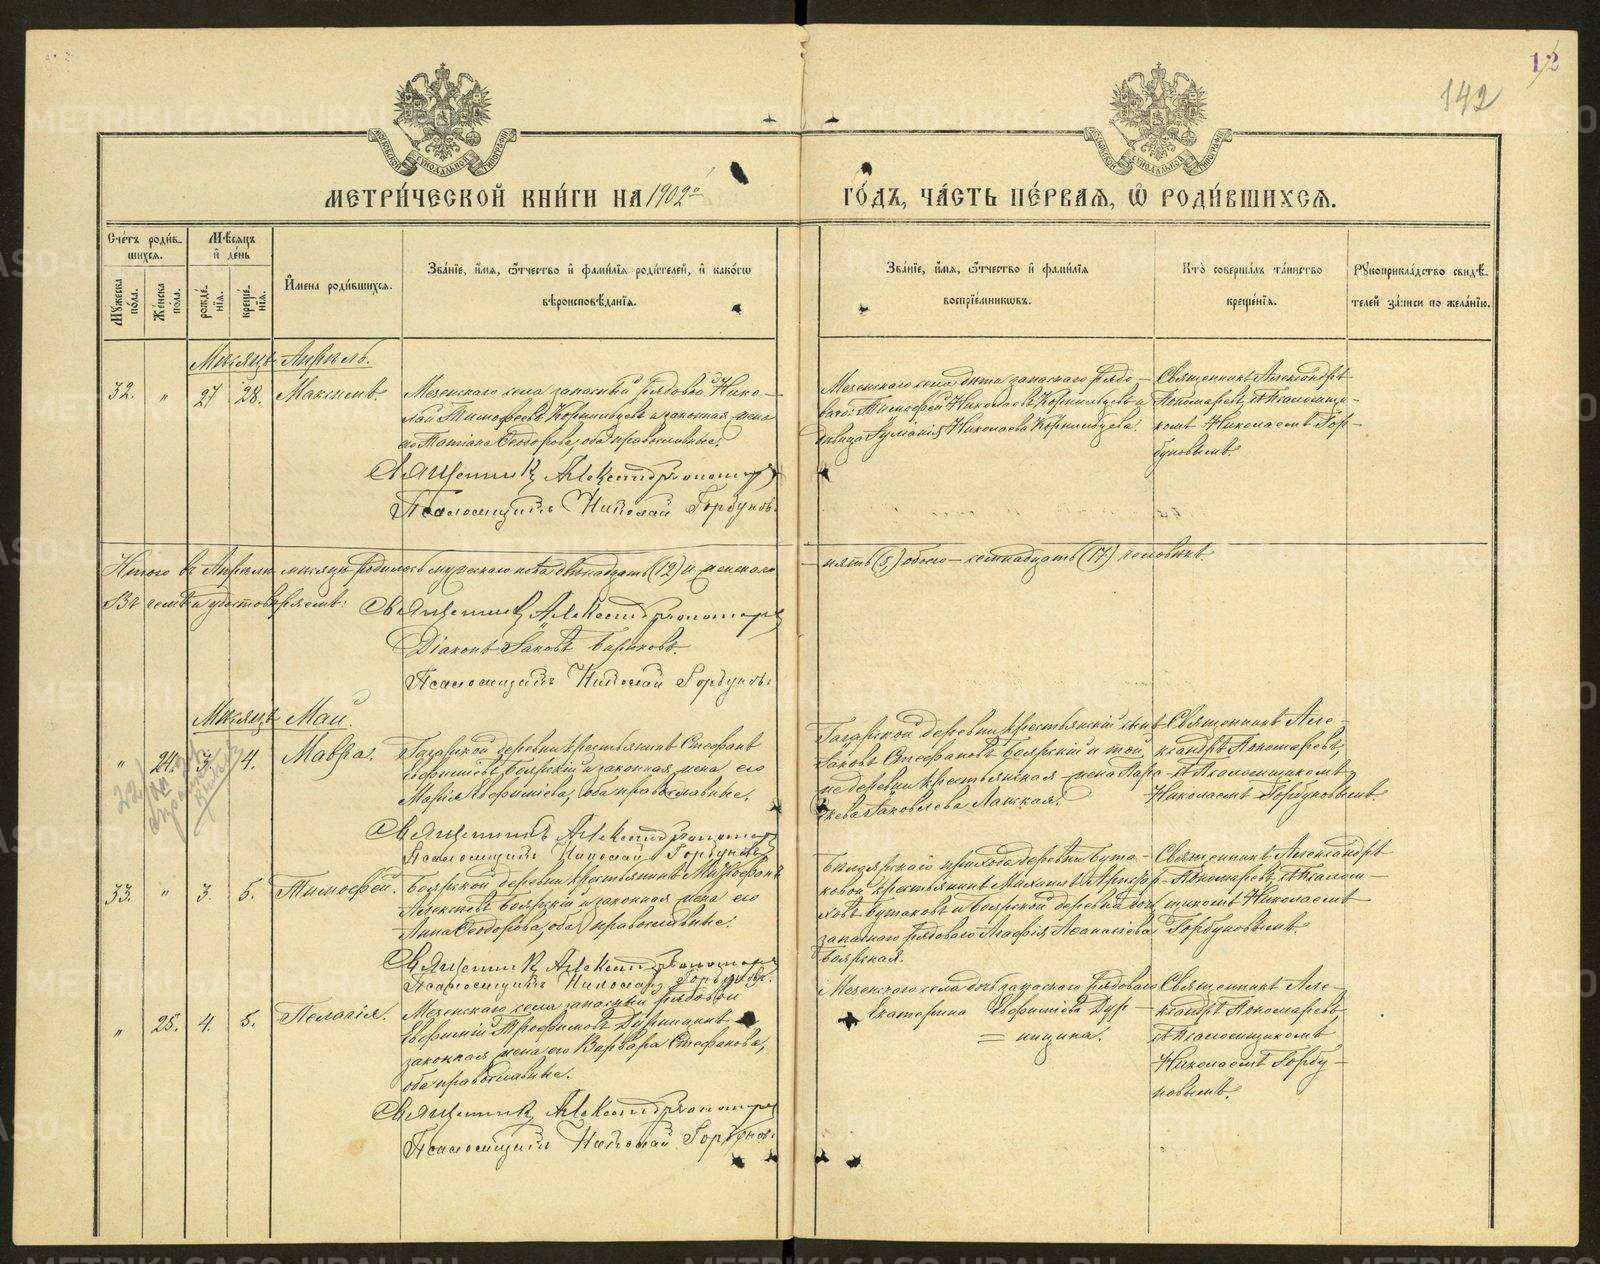 12
142
МОСКОВСКОЙ СУНОДАЛЬНОЙ ТИПОГРАФИИ
МОСКОВСКОЙ СУНОДАЛЬНОЙ ТИПОГРАФИИ
МЕТРИ́ЧЕСКОЙ КНИ́ГИ НА 1902й
ГО́ДЪ, ЧА́СТЬ ПЕ́РВАЯ, Ѽ РОДИ́ВШИХСЯ.
Сче́тъ роди́в-
шихся.
Му́жеска по́ла.
Же́нска по́ла.
Мѣ́сяцъ и́ де́нь
рожде́нїя.
креще́нїя.
И́мена роди́вшихся.
Зва́нїе, и́мя, ѻ́тчество и́ фами́лїя роди́телей, и́ како́гѡ
вѣроисповѣ́данїя.
Зва́нїе, и́мя, ѻ́тчество и́ фами́лїя
воспрїе́мниковъ.
Кто̀ соверша́лъ та́инство
креще́нїя.
Рукоприкла́дство свидѣ́-
телей за́писи по жела́нїю.
Мѣсяцъ Апрѣль.
32. " 27 28. Максимъ
Мезенскаго села запасный рядовой Нико-
лай Тимофеевъ Корнильцевъ и законная жена
его Татіана Ѳеодорова, оба православные.
Священникъ Александръ Пономаревъ
Псаломщикъ Николай Горбуновъ.
Мезенскаго села дѣти запаснаго рядо-
ваго: Тимофей Николаевъ Корнильцевъ и
девица Іуліанія Николаева Корнильцева.
Священникъ Александръ
Пономаревъ, съ Псаломщи-
комъ Николаемъ Гор-
буновымъ.
Итого въ Апрѣлѣ мѣсяцѣ родилось мужескаго пола двѣнадцать (12) и женскаго
- пять (5) обоего - семнадцать (17) человѣкъ
Въ чемъ и удостовѣряемъ:
Священникъ Александръ Пономаревъ
Діаконъ Іаковъ
Псаломщикъ Николай Горбуновъ.
Мѣсяцъ Май.
" 24. 3 4. Мавра.
Гагарской деревни крестьянинъ Стефанъ
Евфиміевъ Боярскій и законная жена его
Марія Евфиміева, оба православные.
Священникъ Александръ Пономаревъ
Псаломщикъ Николай Горбуновъ
Гагарской деревни крестьянскій сынъ
Іаковъ Стефановъ Боярскій и той
же деревни крестьянская жена Пара-
скева Іаковлева Лапская.
Священникъ Але-
ксандръ Пономаревъ,
съ Псаломщикомъ
Николаемъ Горбуновымъ.
33. " 3 5. Тимофей.
Боярской деревни крестьянинъ Митрофанъ
Алексѣевъ Боярскій и законная жена его
Анна Ѳеодорова, оба православные.
Священникъ Александръ Пономаревъ
Псаломщикъ Николай Горбуновъ.
прихода деревни Бута-
ковой крестьянинъ Михаилъ
Бутаковъ и Боярской деревни дочь
запаснаго рядоваго Агафія Аѳанасіева
Боярская.
Священникъ Александръ
Пономаревъ, съ Псалом-
щикомъ Николаемъ
Горбуновымъ
" 25. 4. 5. Пелагія.
Мезенскаго села запасный рядовой
Евфимій Трофимовъ Дурницынъ
законная жена его Варвара Стефанова,
оба православные.
Священникъ Александръ Пономаревъ
Псаломщикъ Николай Горбуновъ.
Мезенскаго села дочь запаснаго рядоваго
Екатерина Евфиміева Дур-
= ницина.
Священникъ Але-
ксандръ Пономаревъ,
съ Псаломщикомъ
Николаемъ Горбу-
новымъ.
METRIKI.GASO-URAL.RU